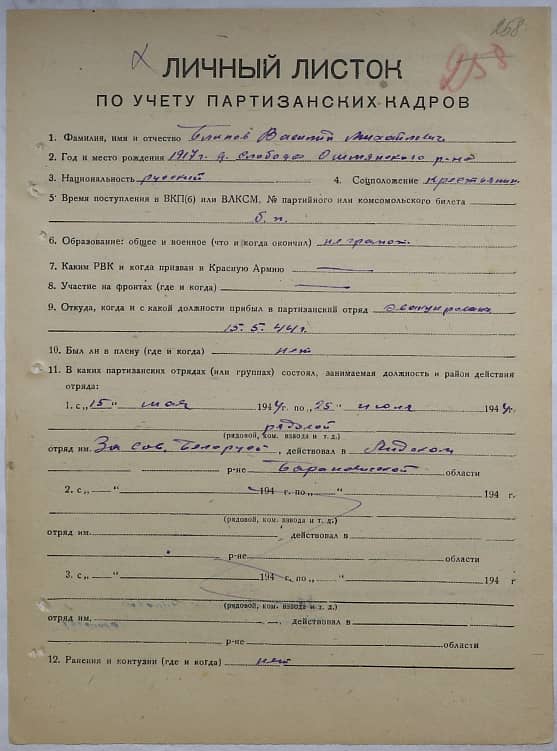 258
258
ЛИЧНЫЙ ЛИСТОК
ПО УЧЕТУ ПАРТИЗАНСКИХ КАДРОВ
1. Фамилия, имя и отчество Блинов Василий Михайлович
2. Год и место рождения 1917 г. д. Слобода Ошмянского р-на
3. Национальность русский 4. Соцположение крестьянин
5. Время поступления в ВКП(б) или ВЛКСМ, № партийного или комсомольского билета
б. п.
6. Образование: общее и военное (что и когда окончил) неграмот.
7. Каким РВК и когда призван в Красную Армию —
8. Участие на фронтах (где и когда) —
9. Откуда, когда и с какой должности прибыл в партизанский отряд
15.5.44 г.
10. Был ли в плену (где и когда) нет
11. В каких партизанских отрядах (или группах) состоял, занимаемая должность и район действия
отряда:
1. с „15" мая 1944 г. по „25" июля 1944 г.
рядовой
(рядовой, ком. взвода и т. д.)
отряд им. За сов. Белорусь, действовал в Лидском
р-не Барановичской области
2. с „ — " 194 г. по „ — " 194 г.
(рядовой, ком. взвода и т. д.)
отряд им. действовал в
р-не области
3. с „ — " 194 г. по „ — " 194 г
(рядовой, ком. взвода и т. д.)
отряд им. , действовал в
р-не области
12. Ранения и контузии (где и когда) нет